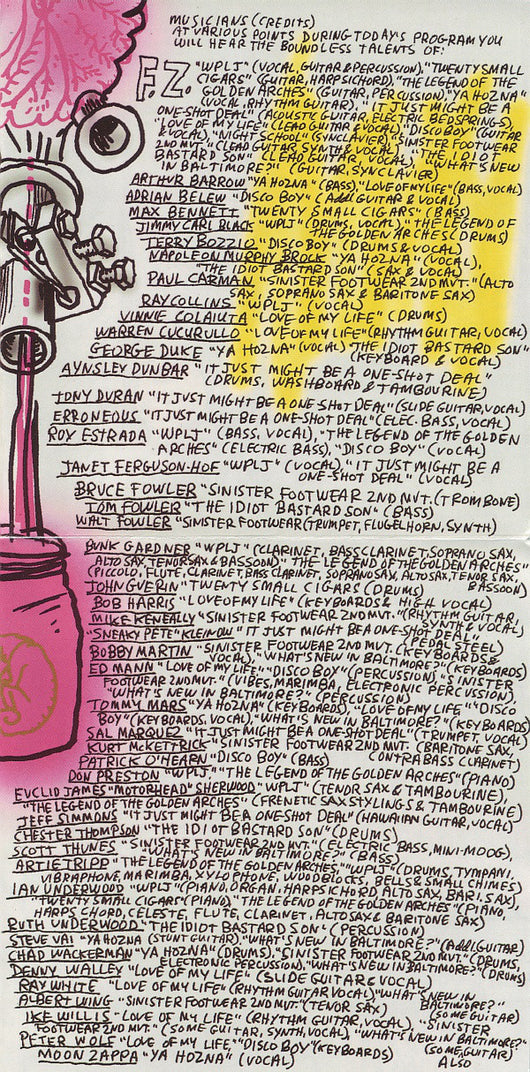 MUSICIANS (CREDITS)
AT VARIOUS POINTS DURING TODAY'S PROGRAM YOU
WILL HEAR THE BOUNDLESS TALENTS OF:
F.Z. "WPLJ" (VOCAL, GUITAR & PERCUSSION), "TWENTY SMALL
CIGARS" (GUITAR, HARPSICHORD), "THE LEGEND OF THE
GOLDEN ARCHES" (GUITAR, PERCUSSION), "YA HOZNA"
(VOCAL, RHYTHM GUITAR), "IT JUST MIGHT BE A
ONE-SHOT DEAL" (ACOUSTIC GUITAR, ELECTRIC BEDSPRINGS),
"LOVE OF MY LIFE" (LEAD GUITAR & VOCAL) "DISCO BOY" (GUITAR
& VOCAL), "NIGHT SCHOOL" (SYNCLAVIER) "SINISTER FOOTWEAR
2ND MVT." (LEAD GUITAR, SYNTH & VOCAL) "THE IDIOT
BASTARD SON" (LEAD GUITAR, VOCAL), "WHAT'S NEW
IN BALTIMORE?" (GUITAR, SYNCLAVIER)
ARTHUR BARROW "YA HOZNA" (BASS), "LOVE OF MY LIFE" (BASS, VOCAL)
ADRIAN BELEW "DISCO BOY" (Addl GUITAR & VOCAL)
MAX BENNETT "TWENTY SMALL CIGARS" (BASS)
JIMMY CARL BLACK "WPLJ" (DRUMS, VOCAL) "THE LEGEND OF
THE GOLDEN ARCHES" (DRUMS)
TERRY BOZZIO "DISCO BOY" (DRUMS & VOCAL)
NAPOLEON MURPHY BROCK "YA HOZNA" (VOCAL),
"THE IDIOT BASTARD SON" (SAX & VOCAL)
PAUL CARMAN "SINISTER FOOTWEAR 2ND MVT." (ALTO
SAX, SOPRANO SAX & BARITONE SAX)
RAY COLLINS "WPLJ" (VOCAL)
VINNIE COLAIUTA "LOVE OF MY LIFE" (DRUMS)
WARREN CUCURULLO "LOVE OF MY LIFE" (RHYTHM GUITAR, VOCAL)
GEORGE DUKE "YA HOZNA" (VOCAL) "THE IDIOT BASTARD SON"
(KEYBOARD & VOCAL)
AYNSLEY DUNBAR "IT JUST MIGHT BE A ONE-SHOT DEAL"
(DRUMS, WASHBOARD & TAMBOURINE)
TONY DURAN "IT JUST MIGHT BE A ONE-SHOT DEAL" (SLIDE GUITAR, VOCAL)
ERRONEOUS "IT JUST MIGHT BE A ONE-SHOT DEAL" (ELEC. BASS, VOCAL)
ROY ESTRADA "WPLJ" (BASS, VOCAL), "THE LEGEND OF THE GOLDEN
ARCHES" (ELECTRIC BASS), "DISCO BOY" (VOCAL)
JANET FERGUSON-HOF "WPLJ" (VOCAL), "IT JUST MIGHT BE A
ONE-SHOT DEAL" (VOCAL)
BRUCE FOWLER "SINISTER FOOTWEAR 2ND MVT. (TROMBONE)
TOM FOWLER "THE IDIOT BASTARD SON" (BASS)
WALT FOWLER "SINISTER FOOTWEAR (TRUMPET, FLUGELHORN, SYNTH)
BUNK GARDNER "WPLJ" (CLARINET, BASS CLARINET, SOPRANO SAX,
ALTO SAX, TENOR SAX & BASSOON) "THE LEGEND OF THE GOLDEN ARCHES"
(PICCOLO, FLUTE, CLARINET, BASS CLARINET, SOPRANO SAX, ALTO SAX, TENOR SAX,
BASSOON)
JOHN GUERIN "TWENTY SMALL CIGARS (DRUMS)
BOB HARRIS "LOVE OF MY LIFE" (KEYBOARDS & HIGH VOCAL)
MIKE KENEALLY "SINISTER FOOTWEAR 2ND MVT." (RHYTHM GUITAR,
SYNTH & VOCAL)
"SNEAKY PETE" KLEINOW "IT JUST MIGHT BE A ONE-SHOT DEAL" (PEDAL STEEL)
BOBBY MARTIN "SINISTER FOOTWEAR 2ND MVT. (KEYBOARDS &
VOCAL), "WHAT'S NEW IN BALTIMORE?" (KEYBOARDS)
ED MANN "LOVE OF MY LIFE" "DISCO BOY" (PERCUSSION), "SINISTER
FOOTWEAR 2ND MVT." (VIBES, MARIMBA, ELECTRONIC PERCUSSION),
"WHAT'S NEW IN BALTIMORE?" (PERCUSSION)
TOMMY MARS "YA HOZNA" (KEYBOARDS), "LOVE OF MY LIFE", "DISCO
BOY" (KEYBOARDS, VOCAL), "WHAT'S NEW IN BALTIMORE?" (KEYBOARDS)
SAL MARQUEZ "IT JUST MIGHT BE A ONE-SHOT DEAL" (TRUMPET, VOCAL)
KURT McKETTRICK "SINISTER FOOTWEAR 2ND MVT. (BARITONE SAX,
CONTRABASS CLARINET)
PATRICK O'HEARN "DISCO BOY" (BASS)
DON PRESTON "WPLJ" "THE LEGEND OF THE GOLDEN ARCHES" (PIANO)
EUCLID JAMES "MOTORHEAD" SHERWOOD "WPLJ" (TENOR SAX & TAMBOURINE),
"THE LEGEND OF THE GOLDEN ARCHES" (FRENETIC SAX STYLINGS & TAMBOURINE)
JEFF SIMMONS "IT JUST MIGHT BE A ONE-SHOT DEAL" (HAWAIIAN GUITAR, VOCAL)
CHESTER THOMPSON "THE IDIOT BASTARD SON" (DRUMS)
SCOTT THUNES "SINISTER FOOTWEAR 2ND MVT." (ELECTRIC BASS, MINI-MOOG),
"WHAT'S NEW IN BALTIMORE?" (BASS)
ARTIE TRIPP "THE LEGEND OF THE GOLDEN ARCHES" "WPLJ" (DRUMS, TYMPANI,
VIBRAPHONE, MARIMBA, XYLOPHONE, WOODBLOCKS, BELLS & SMALL CHIMES)
IAN UNDERWOOD "WPLJ" (PIANO, ORGAN, HARPSICHORD, ALTO SAX, BARI, SAX),
"TWENTY SMALL CIGARS" (PIANO), "THE LEGEND OF THE GOLDEN ARCHES" (PIANO,
HARPSICHORD, CELESTE, FLUTE, CLARINET, ALTO SAX & BARITONE SAX)
RUTH UNDERWOOD "THE IDIOT BASTARD SON" (PERCUSSION)
STEVE VAI "YA HOZNA (STUNT GUITAR), "WHAT'S NEW IN BALTIMORE?" (Addl GUITAR)
CHAD WACKERMAN "YA HOZNA" (DRUMS), "SINISTER FOOTWEAR 2ND MVT." (DRUMS,
ELECTRONIC PERCUSSION), "WHAT'S NEW IN BALTIMORE?" (DRUMS)
DENNY WALLEY "LOVE OF MY LIFE" (SLIDE GUITAR & VOCAL)
RAY WHITE "LOVE OF MY LIFE" (RHYTHM GUITAR VOCAL) "WHAT'S NEW IN
BALTIMORE?" (SOME GUITAR)
ALBERT WING "SINISTER FOOTWEAR 2ND MVT." (TENOR SAX)
IKE WILLIS "LOVE OF MY LIFE" (RHYTHM GUITAR, VOCAL), "SINISTER
FOOTWEAR 2ND MVT." (SOME GUITAR, SYNTH, VOCAL), "WHAT'S NEW IN BALTIMORE?"
(SOME, GUITAR)
PETER WOLF "LOVE OF MY LIFE," "DISCO BOY" (KEYBOARDS) ALSO
MOON ZAPPA "YA HOZNA" (VOCAL)